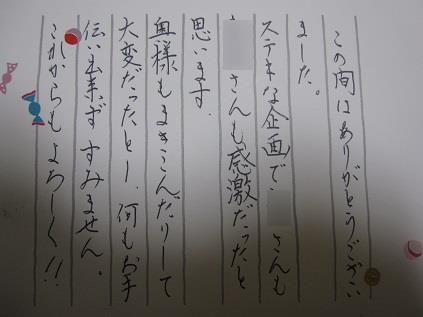 この間はありがとうござい
ました。
ステキな企画で さんも
さんも感激だったと
思います.
奥様もまきこんだりして
大変だったとー.何もお手
伝い出来ず すみません。
これからもよろしく!!